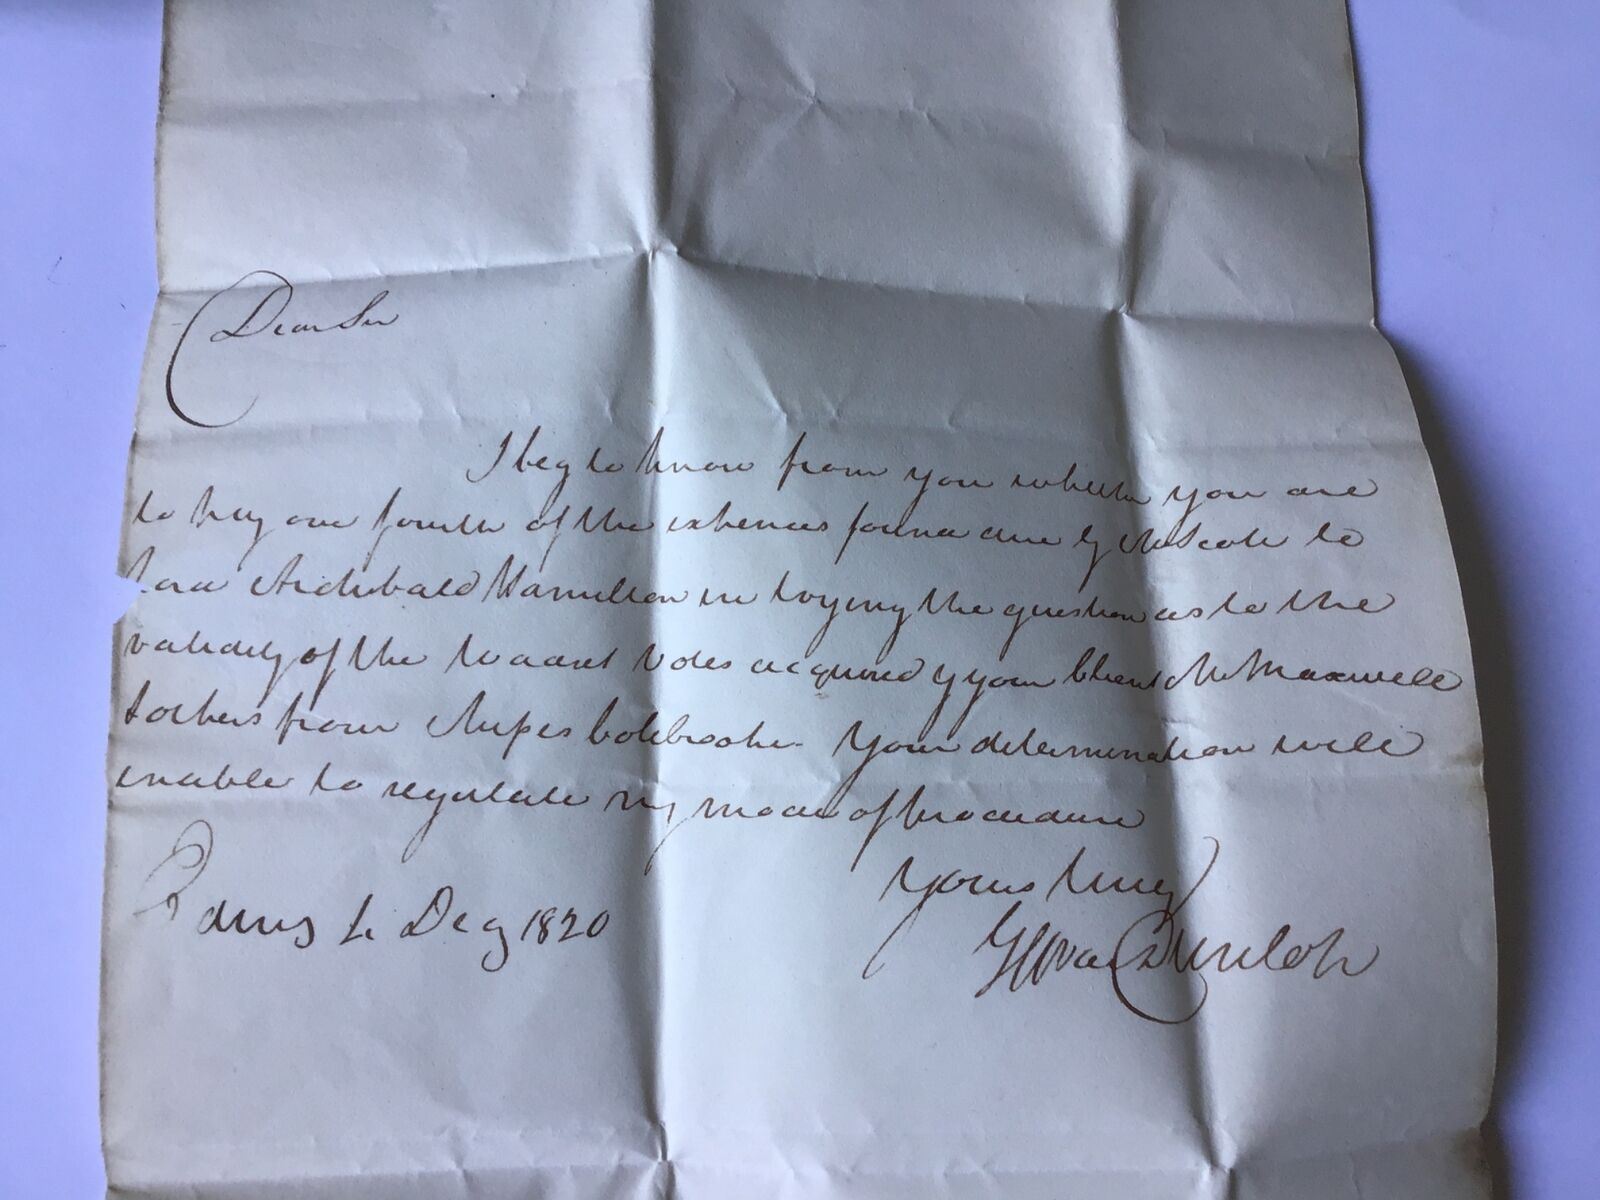 Dear Sir
I beg to know from you whether you are
to pay one fourth of the expences found due by Mr Scott to
Lord Archibald Hamilton in trying the question as to the
validity of the Votes acquired by your Client Mr Maxwell
& others from Colebrooke. Your determination will
enable to regulate my mode of procedure
Yours truly
Dunlop
Decr 1820